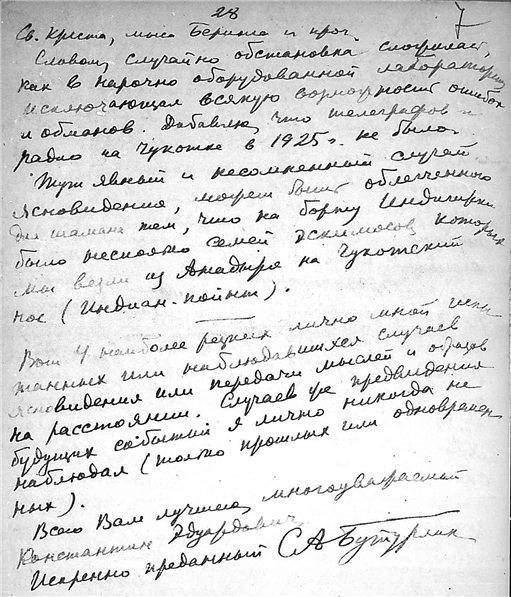 28
7
Св. Креста, мыса Беринга и проч.
Словом, случайно обстановка сложилась,
как в нарочно оборудованной лаборатории
исключающая всякую возможность ошибок
и обманов. Добавлю, что телеграфов и
радио на Чукотке в 1925 г. не было.
Тут явный и несомненный случай
ясновидения, может быть облегченного
для шамана тем, что на борту Индигирки
было несколько семей эскимосов, которых
мы везли из Анадыря на Чукотский
нос (Индиан-пойнт).
Вот 4 наиболее резких лично мной испы-
танных или наблюдавшихся случаев
ясновидения или передачи мыслей и образов
на расстоянии. Случаев же предвидения
будущих событий я лично никогда не
наблюдал (только прошлых или одновремен-
ных).
Всего Вам лучшего, многоуважаемый
Константин Эдуардович
Искренно преданный С А Бутурлин